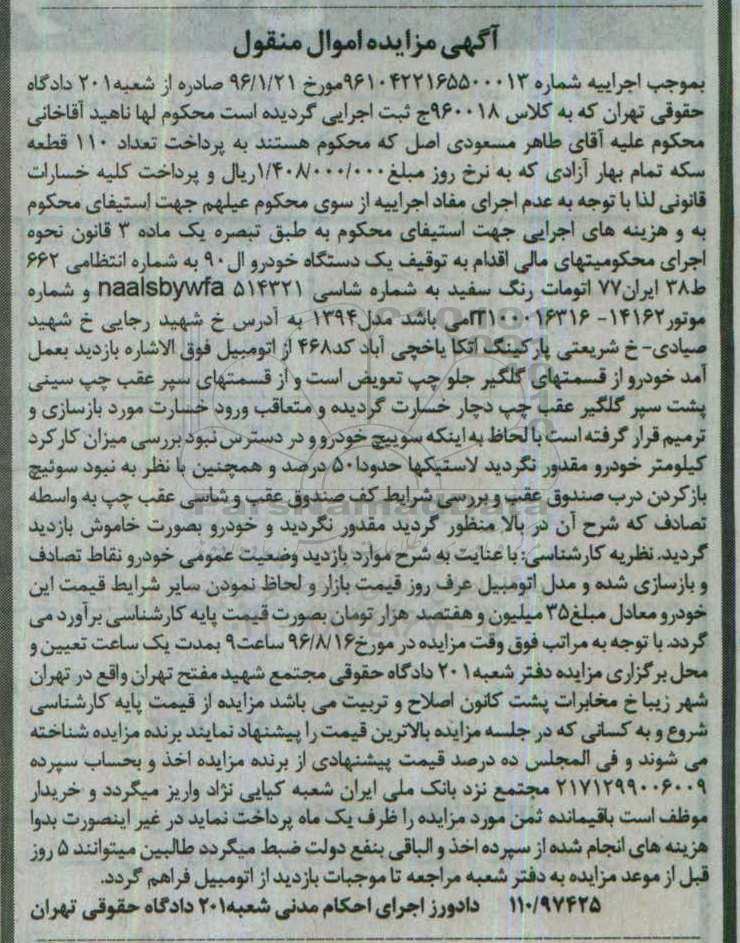 آگهی مزایده اموال منقول
بموجب اجراییه شماره ۹۶۱۰۴۲۲۱۶۵۵۰۰۰۱۳مورخ ۹۶/۱/۲۱ صادره از شعبه۲۰۱ دادگاه
حقوقی تهران که به کلاس ۹۶۰۰۱۸ج ثبت اجرایی گردیده است محکوم لها ناهید آقاخانی
محکوم علیه آقای طاهر مسعودی اصل که محکوم هستند به پرداخت تعداد ۱۱۰ قطعه
سکه تمام بهار آزادی که به نرخ روز مبلغ۱/۴۰۸/۰۰۰/۰۰۰ریال و پرداخت کلیه خسارات
قانونی لذا با توجه به عدم اجرای مفاد اجراییه از سوی محکوم عیلهم جهت استیفای محکوم
به و هزینه های اجرایی جهت استیفای محکوم به طبق تبصره یک ماده ۳ قانون نحوه
اجرای محکومیتهای مالی اقدام به توقیف یک دستگاه خودرو ال۹۰ به شماره انتظامی ۶۶۲
ط۳۸ ایران۷۷ اتومات رنگ سفید به شماره شاسی ۵۱۴۳۲۱ naalsbywfa و شماره
موتور۱۴۱۶۲- ۱۰۰۰۱۶۳۱۶می باشد مدل۱۳۹۴ به آدرس خ شهید رجایی خ شهید
صیادی- خ شریعتی پارکینگ اتکا یاخچی آباد کد۴۶۸ از اتومبیل فوق الاشاره بازدید بعمل
آمد خودرو از قسمتهای گلگیر جلو چپ تعویض است و از قسمتهای سپر عقب چپ سینی
پشت سپر گلگیر عقب چپ دچار خسارت گردیده و متعاقب ورود خسارت مورد بازسازی و
ترمیم قرار گرفته است با لحاظ به اینکه سوییچ خودرو و در دسترس نبود بررسی میزان کارکرد
کیلومتر خودرو مقدور نگردید لاستیکها حدودا۵۰ درصد و همچنین با نظر به نبود سوئیچ
بازکردن درب صندوق عقب و بررسی شرایط کف صندوق عقب و شاسی عقب چپ به واسطه
تصادف که شرح آن در بالا منظور گردید مقدور نگردید و خودرو بصورت خاموش بازدید
گردید. نظریه کارشناسی: با عنایت به شرح موارد بازدید وضعیت عمومی خودرو نقاط تصادف
و بازسازی شده و مدل اتومبیل عرف روز قیمت بازار و لحاظ نمودن سایر شرایط قیمت این
خودرو معادل مبلغ۳۵ میلیون و هفتصد هزار تومان بصورت قیمت پایه کارشناسی برآورد می
گردد. با توجه به مراتب فوق وقت مزایده در مورخ۹۶/۸/۱۶ ساعت۹ بمدت یک ساعت تعیین و
محل برگزاری مزایده دفتر شعبه۲۰۱ دادگاه حقوقی مجتمع شهید مفتح تهران واقع در تهران
شهر زیبا خ مخابرات پشت کانون اصلاح و تربیت می باشد مزایده از قیمت پایه کارشناسی
شروع و به کسانی که در جلسه مزایده بالاترین قیمت را پیشنهاد نمایند برنده مزایده شناخته
می شوند و فی المجلس ده درصد قیمت پیشنهادی از برنده مزایده اخذ و بحساب سپرده
۲۱۷۱۲۹۹۰۰۶۰۰۹ مجتمع نزد بانک ملی ایران شعبه کیایی نژاد واریز میگردد و خریدار
موظف است باقیمانده ثمن مورد مزایده را ظرف یک ماه پرداخت نماید در غیر اینصورت بدوا
هزینه های انجام شده از سپرده اخذ و الباقی بنفع دولت ضبط میگردد طالبین میتوانند ۵ روز
قبل از موعد مزایده به دفتر شعبه مراجعه تا موجبات بازدید از اتومبیل فراهم گردد.
۱۱۰/۹۷۴۲۵ دادورز اجرای احکام مدنی شعبه۲۰۱ دادگاه حقوقی تهران
ParsNamadData